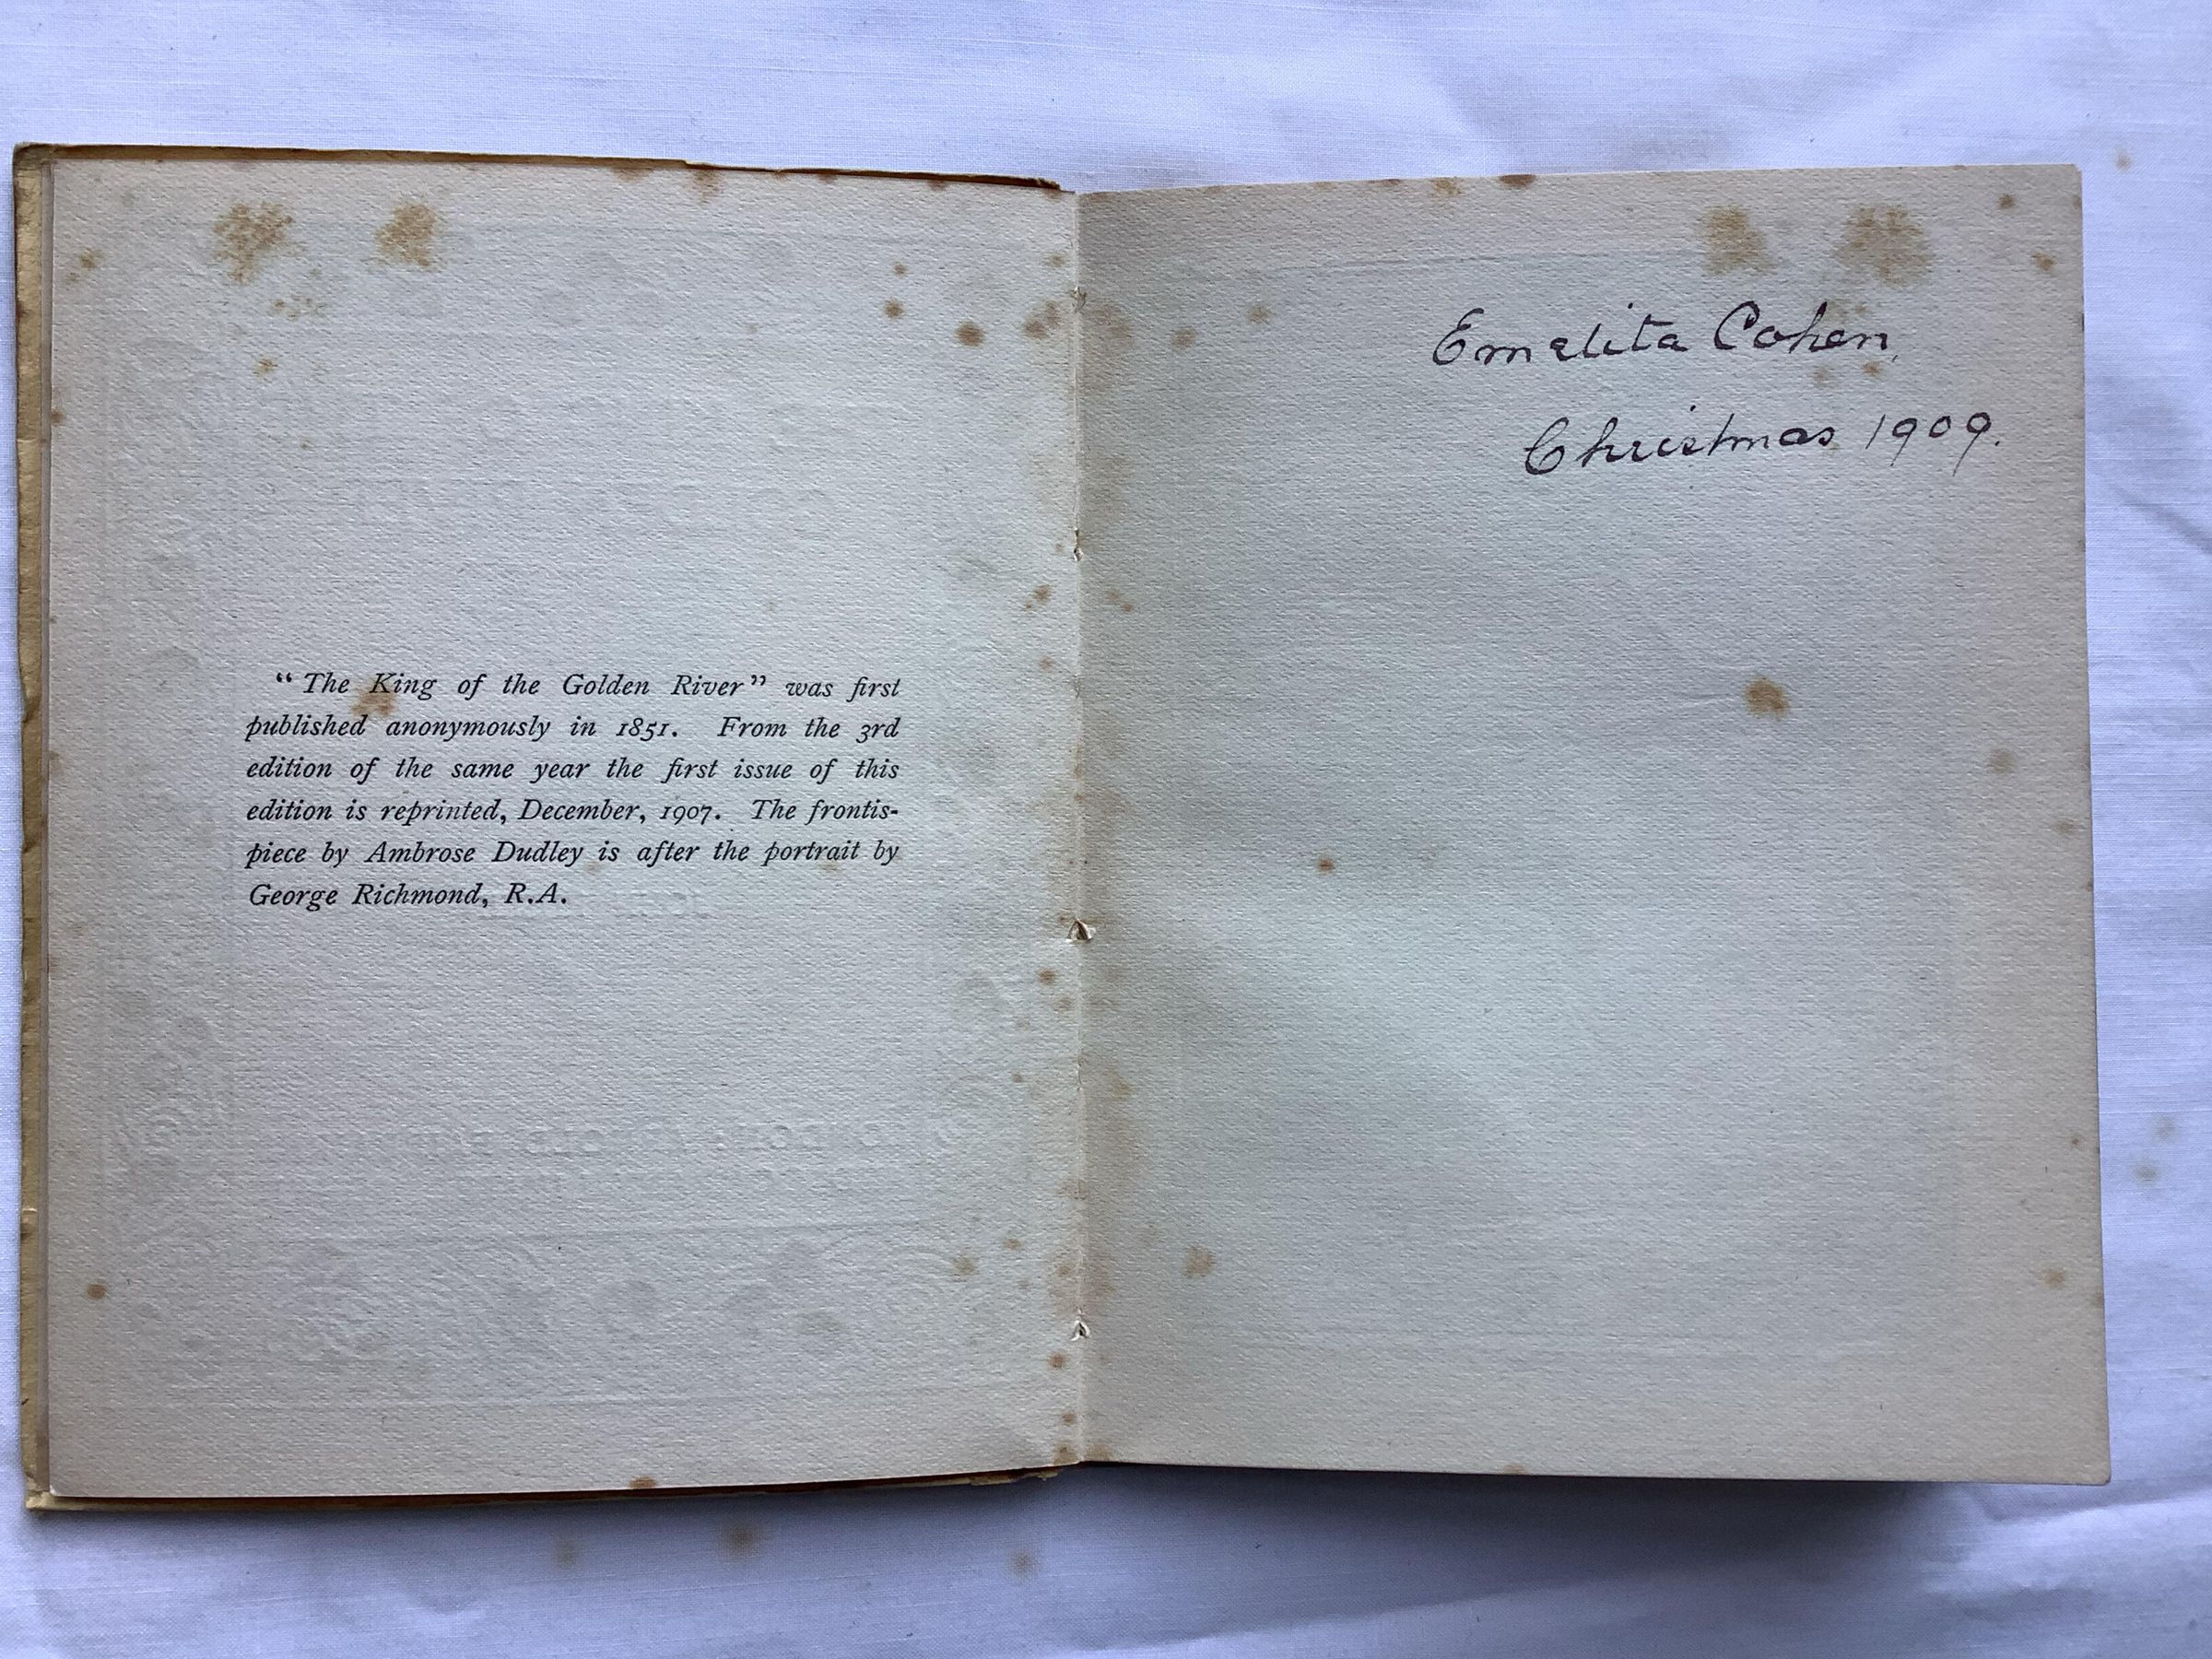 "The King of the Golden River" was first
published anonymously in 1851. From the 3rd
edition of the same year the first issue of this
edition is reprinted, December, 1907. The frontis-
piece by Ambrose Dudley is after the portrait by
George Richmond, R.A.
Emelita Cohen,
Christmas 1909.